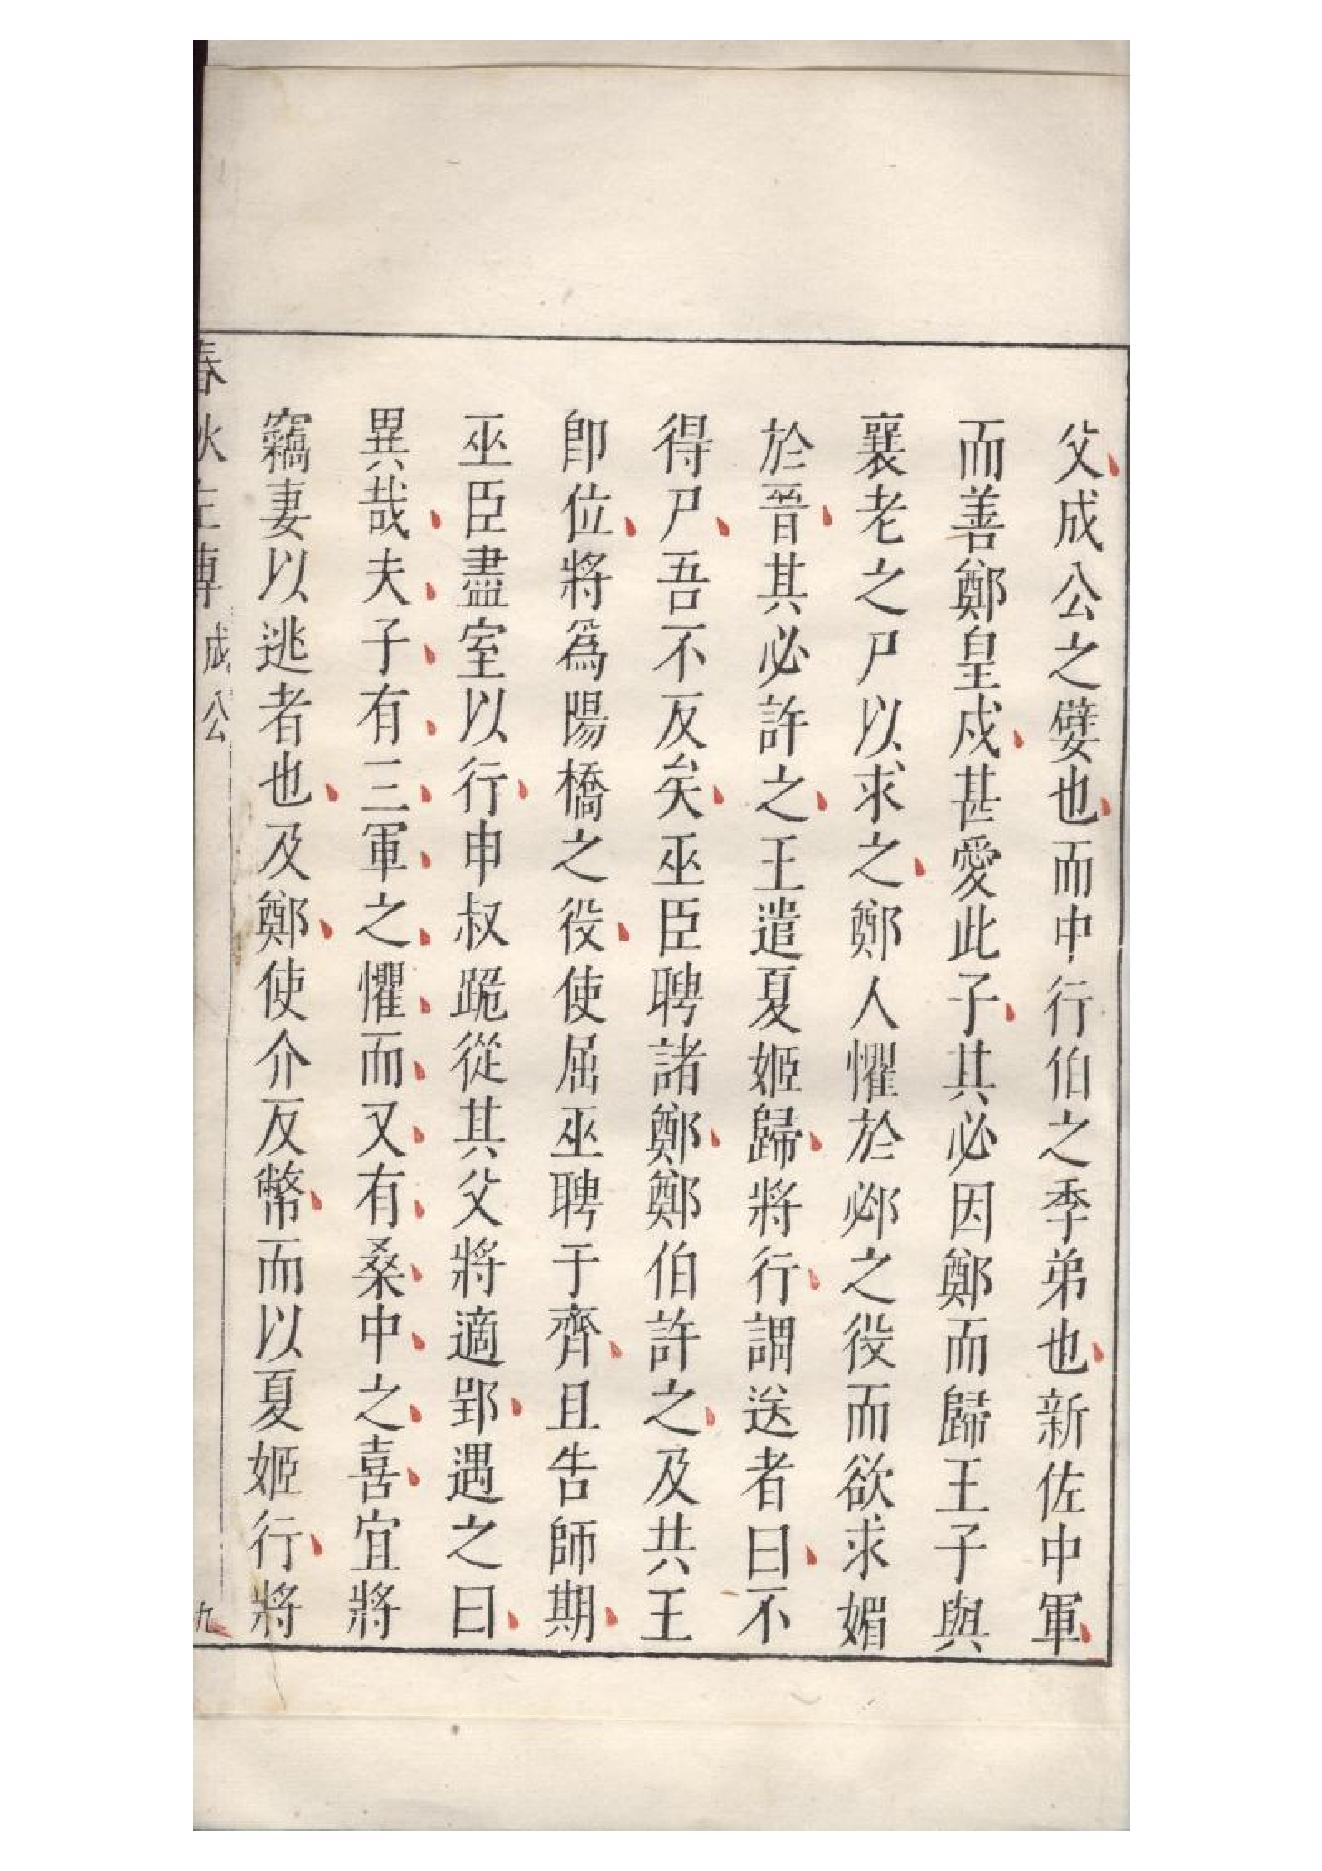 父成公之嬖也而中行伯之季弟也新佐中軍
而善鄭皇戌甚愛此子其必因鄭而歸王子與
襄老之尸以求之鄭人懼於邲之役而欲求媚
於晉其必許之王遣夏姬歸將行謂送者曰不
得尸吾不反矣巫臣聘諸鄭鄭伯許之及共王
卽位將爲陽橋之役使屈巫聘于齊且告師期
巫臣盡室以行申叔跪從其父將適郢遇之曰
異哉夫子有三軍之懼而又有桑中之喜宜將
竊妻以逃者也及鄭使介反幣而以夏姬行將
春秋左傳 成公 九